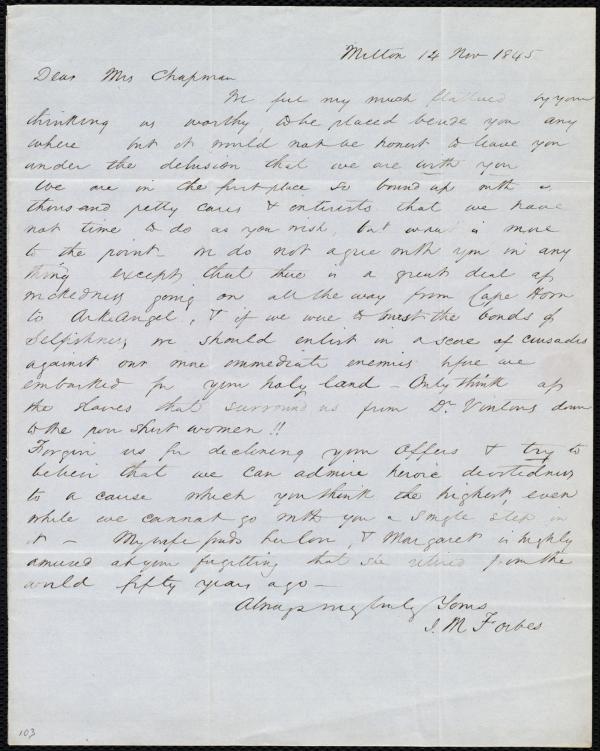 Milton 14 Nov 1845
Dear Mrs Chapman
We feel very much flattered by your
thinking us worthy to be placed beside you any
where but it would not be honest to leave you
under the delusion that we are with you
We are in the first place so bound up with a
thousand petty cares & interests that we have
not time to do as you wish, but what is more
to the point - we do not agree with you in any
thing except that there is a great deal of
wickedness going on all the way from Cape Horn
to Arkangel, & if we were to burst the bonds of
Selfishness, we should enlist in a score of crusades
against our more immediate enemies before we
embarked for your holy land - Only think of
the slaves that surround us from Dr. Vintons down
to the poor shirt women!!
Forgive us for declining your offers & try to
believe that we can admire heroic devotedness
to a cause which you think the highest, even
while we cannot go with you a single step in
it - My wife sends her love, & Margaret is highly
amused at your forgetting that she retired from the
world fifty years ago -
Always very truly Yours
J. M Forbes
103